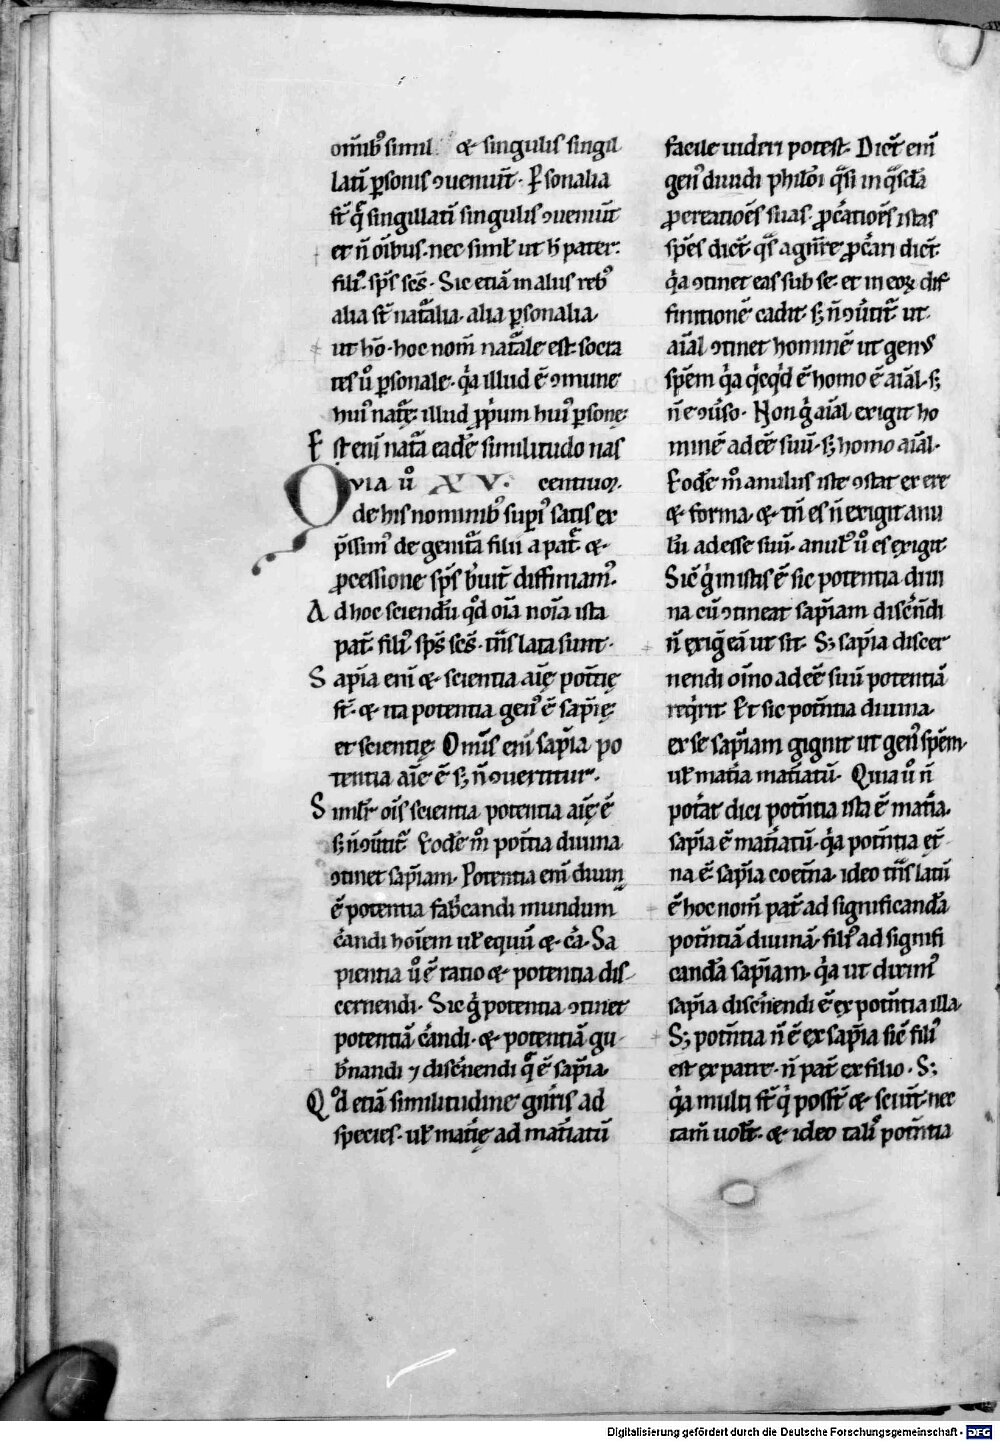 om̅ib᷒ simil & singulis singil
latī ꝑsonis ꝯueniūt. Ꝑsonalia
st̄ q̄ singillatī singulis ꝯueniūt
et n̄ oībus. nec simł ut h̄ pater:
fili᷒. sp̄s sc̄s. Sic etiā in aliis reb᷒
alia st̄ nat͛alia. alia ꝑsonalia.
ut hō. hoc nom̄ nat͛ale est. socra
tes ů ꝑsonale. q͛a illud ē ꝯmune
hui᷒ nat͛ę: illud ꝓp͛ium hui᷒ ꝑsonę:
Est enī nat͛a eadē similitudo nas
Qvia ů XV. centiuoꝝ.
de his nominib᷒ supi᷒ satis ex
p̄ssim᷒ de genit͛a filii a pat̄. &
ꝓcessione sp̄s b͛uit̄ diffiniam᷒.
Ad hoc sciendū qd̊ oīa noīa ista
pat̄. fili᷒. sp̄s sc̄s. t͛nslata sunt.
Sap̄ia enī & scientia aīę potn̄tię
st̄. & ita potentia gen᷒ ē sap̄ię:
et scientię: Omīs enī sap̄ia po
tentia aīę ē s; n̄ ꝯuertitur.
Similr̄ oīs scientia potentia aīę ē
s; n̄ ꝯůtit͛. Eodē m̊ potn̄tia diuina
ꝯtinet sap̄iam. Potentia enī diuina
ē potentia fab͛candi mundum
c͛andi hoīem uł equū & c͛a. Sa
pientia ů ē ratio & potentia dis
cernendi. Sic g͛ potentia ꝯtinet
potentiā c͛andi. & potentiā gu
b͛nandi ⁊ disc͛nendi q̄ ē sap̄ia.
Qd̊ etiā similitudine gn̄ris ad
species. uł mat͛ię ad mat͛iatū
facile uideri potest. Dict̄ enī
gen᷒ diuidi philoi q͛si in q͛sdā
ꝓcreatioēs suas. ꝓc͛atioēs istas
spēs dict̄. q͛s a gn̄re ꝓc͛ari dict̄.
q͛a ꝯtinet eas sub se. et in eoꝝ dif
finitionē cadit. s; n̄ ꝯůtit͛. ut.
aīal ꝯtinet hominē ut gens
spēm q͛a q͛cq͛d ē homo ē aīal. s;
n̄ e ꝯůso. Non g͛ aīal exigit ho
minē ad eē suū. s; homo aīal.
Eodē m̊ anulus iste ꝯstat ex ere
& forma. & tn̄ es n̄ exigit anu
lū ad esse suū. anul᷒ ů es exigit.
Sic̄ g͛ in istis ē sic potentia diui
na cū ꝯtineat sap̄iam disc͛ndi
n̄ exig͛ eā ut sit. S; sap̄ia discer
nendi oīno ad eē suū potentiā
req͛rit. Et sic potn̄tia diuina
ex se sap̄iam gignit ut gen᷒ spēm.
uł mat͛ia mat͛iatū. Quia ů n̄
pot͛at dici potn̄tia ista ē mat͛ia.
sap̄ia ē mat͛iatū. q͛a potn̄tia et̄
na ē sap̄ia coet̄na. ideo t͛nslatū
ē hoc nom̄ pat̄ ad significandā
potn̄tiā diuinā. fili᷒ ad signifi
candā sap̄iam. q͛a ut dixim᷒
sap̄ia disc͛nendi ē ex potn̄tia illa.
S; potn̄tia n̄ ē ex sap̄ia sic̄ fili᷒
est ex patre. n̄ pat̄ ex filio. S;
q͛a multi st̄ q͛ posst̄ & sciūt. nec
tam̄ uolt̄. & ideo tali᷒ potn̄tia
Digitalisierung gefördert durch die Deutsche Forschungsgemeinschaft - DFG